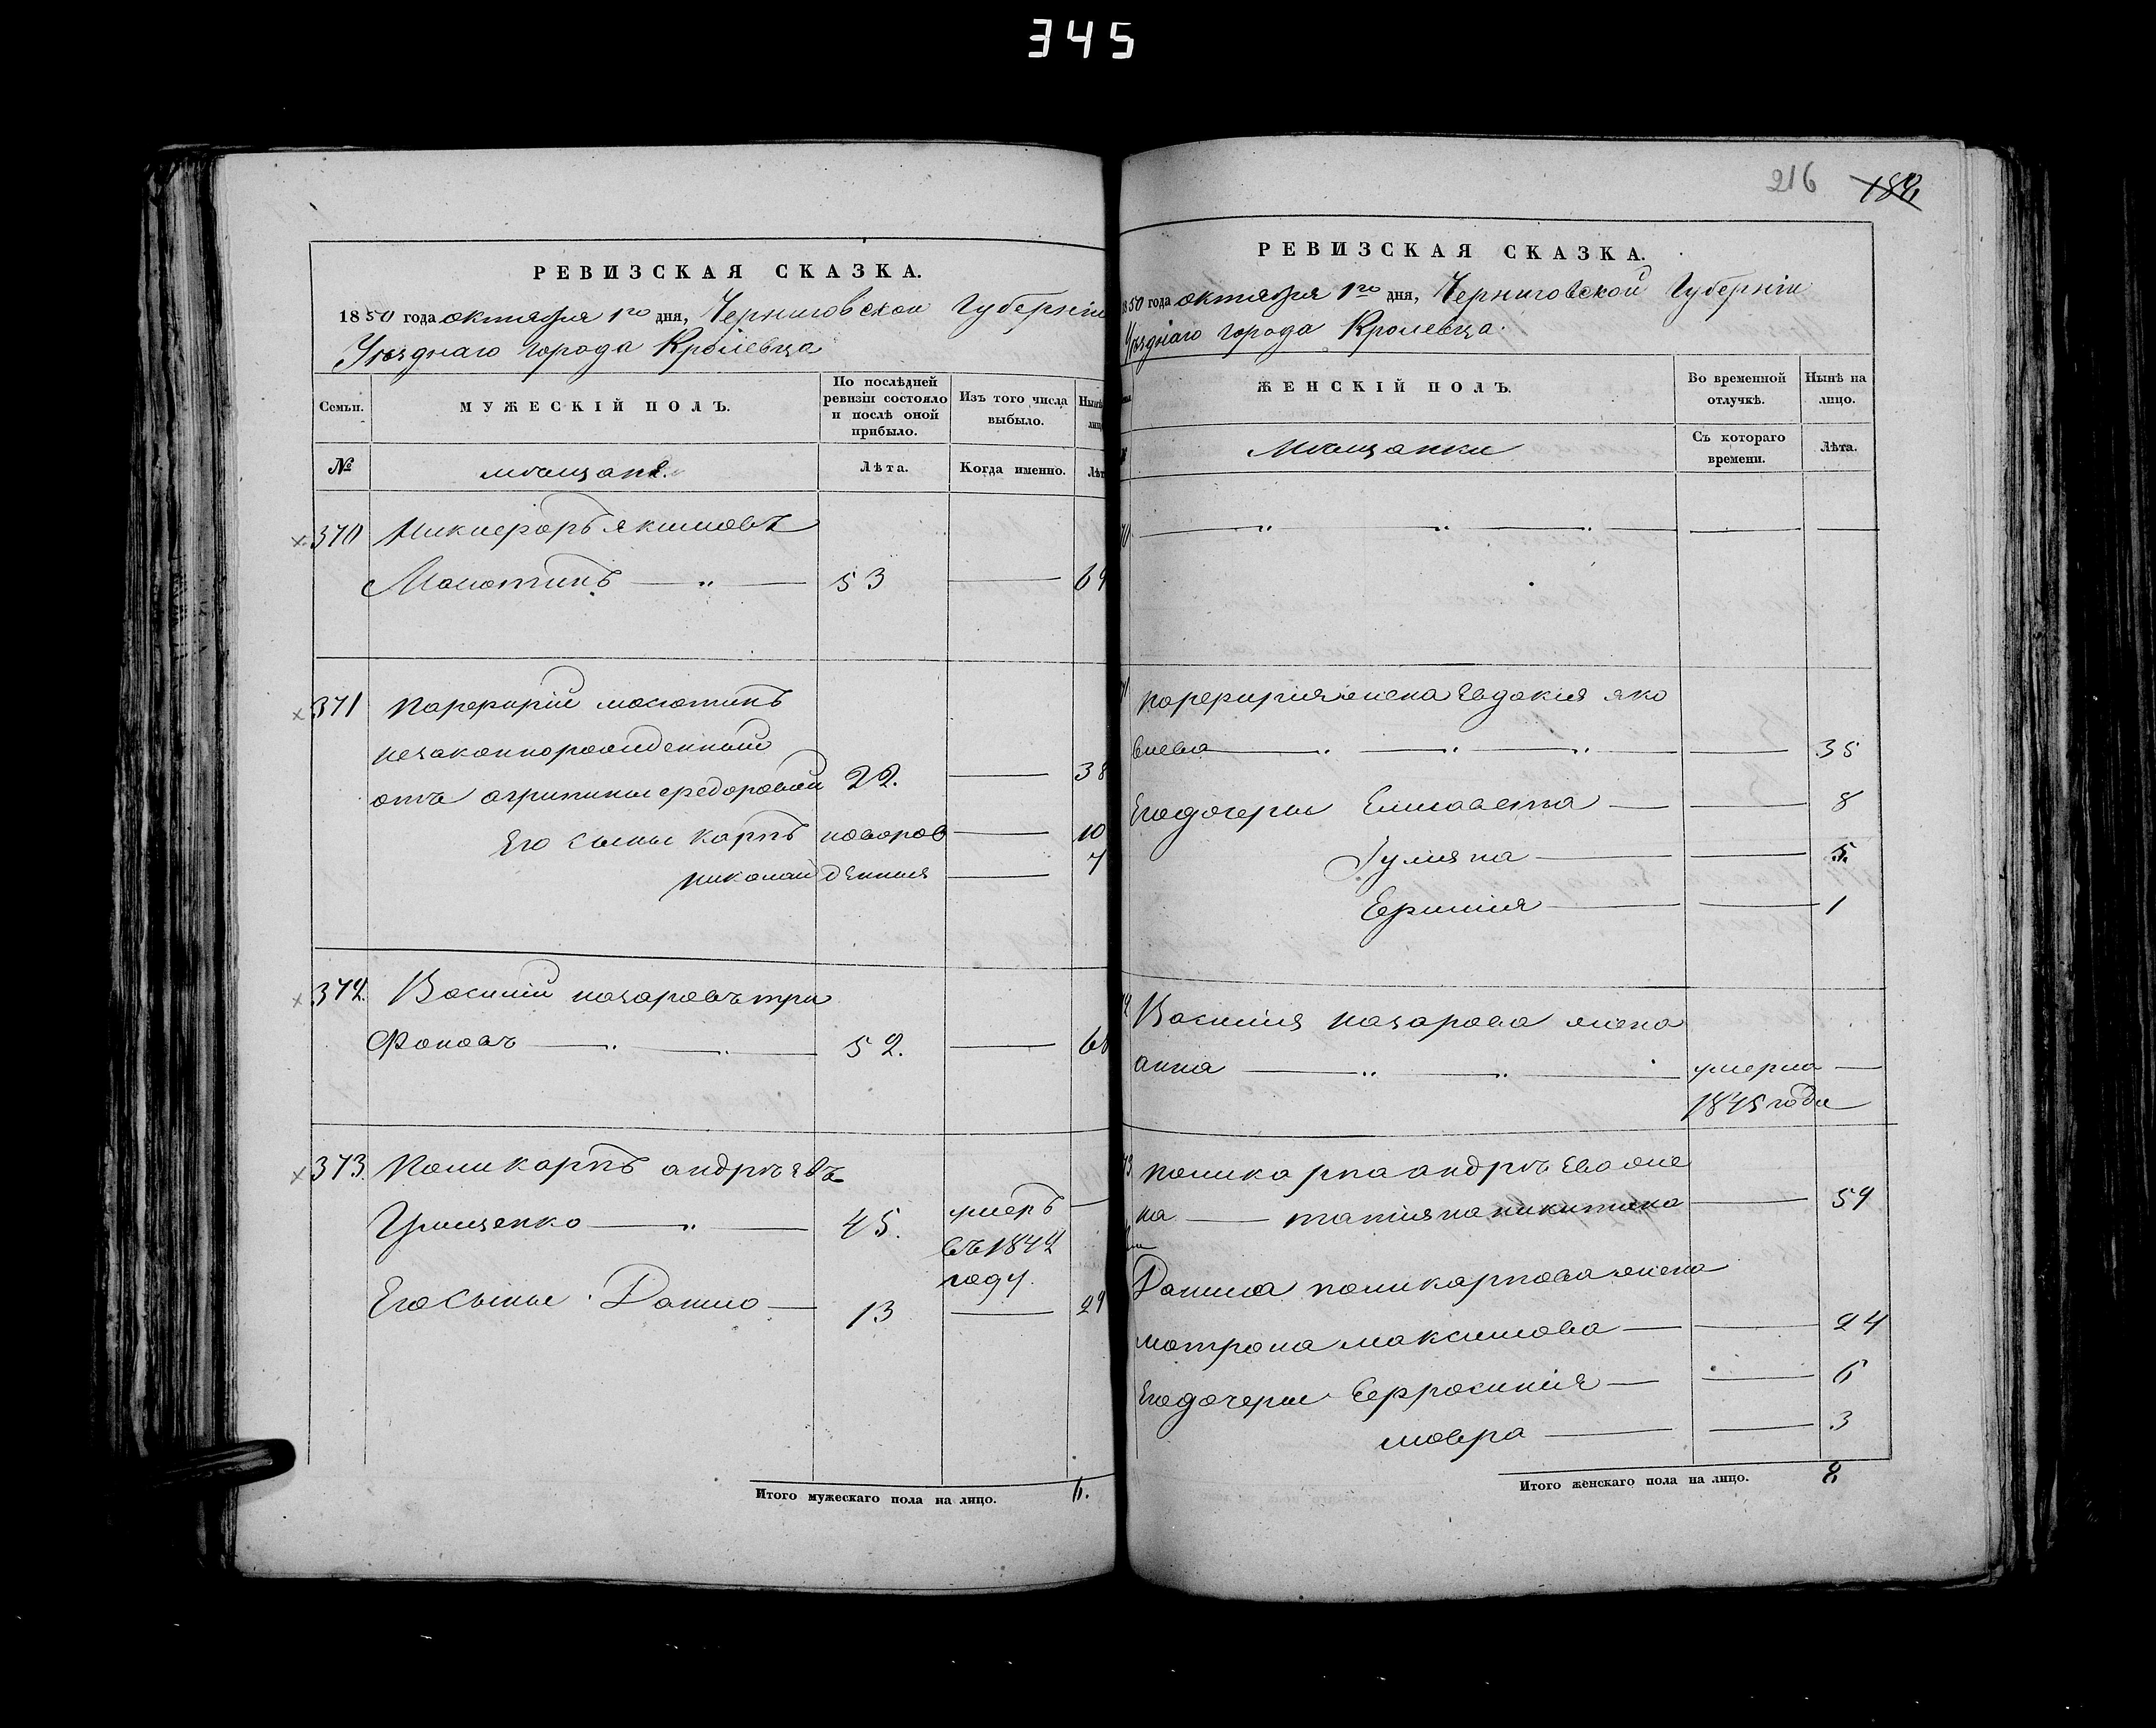 345
РЕВИЗСКАЯ СКАЗКА.
1850 года октября 1го дня, Черниговской Губерніи
Уѣзднаго города Кролевца
Семьи.
МУЖЕСКІЙ ПОЛЪ.
По послѣдней ревизіи состояло и послѣ оной прибыло.
Изъ того числа выбыло.
№
мѣщане.
Лѣта.
Когда именно.
370 Никифоръ Якимовъ
53 69
371 Порфирій
незаконнорожденный
отъ Агрипины Федоровой 22. 38
Его сыны Карпъ новорож 10
Николай денныя 7
372. Василій Назаровъ Три
фоновъ 52. 68
373. Поликарпъ Андрѣевъ
Грищенко 45. умеръ
въ 1842
году.
Его сыны Данило 13 29
Итого мужескаго пола на лицо. 6.
216 189
РЕВИЗСКАЯ СКАЗКА.
1850 года октября 1го дня, Черниговской Губерніи
Уѣзднаго города Кролевца.
ЖЕНСКІЙ ПОЛЪ.
Во временной отлучкѣ.
Нынѣ на лицо.
Мѣщанки
Съ котораго времени.
Лѣта.
Порфирія жена Евдокия Яко
влева 35
Его дочеры Елисавета 8
Гулияна 5.
Ефимия 1
Василия Назарова жена
Анна умерла
1845 года
Поликарпа Андрѣева же
на Татияна Никитина 59
Данила Поликарпова жена
Мотрона Максимова 24
Его дочеры Ефросиния 6
Мавра 3
Итого женскаго пола на лицо. 8